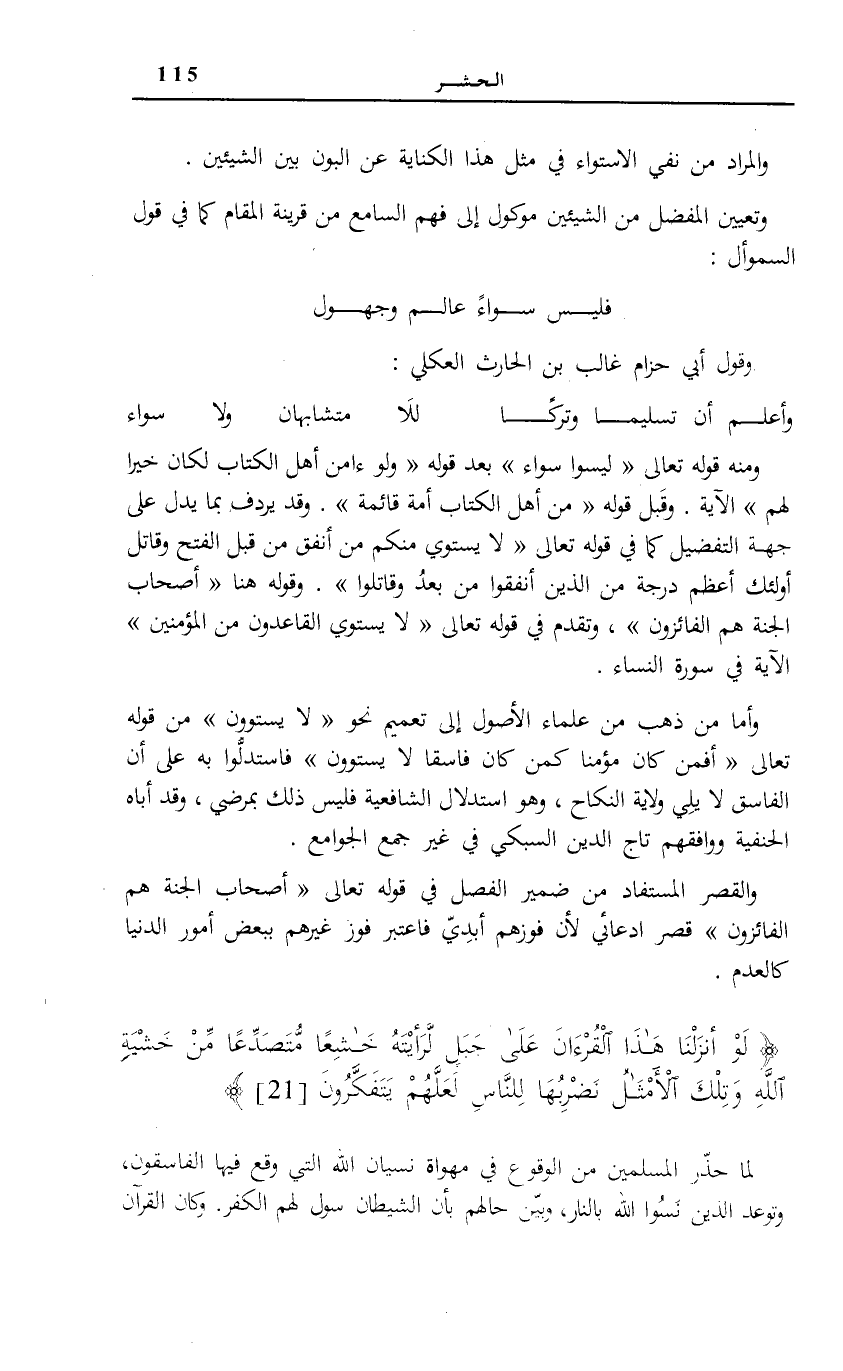 الحشر 115
والمراد من نفي الاستواء في مثل هذا الكناية عن البون بين الشيئين .
وتعيين المفضل من الشيئين موكول إلى فهم السامع من قرينة المقام كما في قول
السموأل :
فليـــس ســـواءً عالـــم وجهـــول
وقول أبي حزام غالب بن الحارث العكلي :
وأعلـــم أن تسليمـــا وتركًـــا للَا متشابهان ولا سواء
ومنه قوله تعالى « ليسوا سواء » بعد قوله « ولو ءامن أهل الكتاب لكان خيرا
لهم » الآية . وقَبل قوله « من أهل الكتاب أمة قائمة » . وقد يردف بما يدل على
جهة التفضيل كما في قوله تعالى « لا يستوي منكم من أنفق من قبل الفتح وقاتل
أولئك أعظم درجة من الذين أنفقوا من بعدُ وقاتلوا » . وقوله هنا « أصحاب
الجنة هم الفائزون » ، وتقدم في قوله تعالى « لا يستوي القاعدون من المؤمنين »
الآية في سورة النساء .
وأما من ذهب من علماء الأصول إلى تعميم نحو « لا يستوون » من قوله
تعالى « أفمن كان مؤمنا كمن كان فاسقا لا يستوون » فاستدلُّوا به على أن
الفاسق لا يلِي ولاية النكاح ، وهو استدلال الشافعية فليس ذلك بمرضي ، وقد أباه
الحنفية ووافقهم تاج الدين السبكي في غير جمع الجوامع .
والقصر المستفاد من ضمير الفصل في قوله تعالى « أصحاب الجنة هم
الفائزون » قصر ادعائي لأن فوزهم أبدِيّ فاعتبر فوز غيرهم ببعض أمور الدنيا
كالعدم .
﴿ لَوْ أَنزَلْنَا هَـٰذَا ٱلْقُرْءَانَ عَلَىٰ جَبَلٍ لَّرَأَيْتَهُ خَـٰشِعًا مُّتَصَدِّعًا مِّنْ خَشْيَةِ
ٱللَّهِ وَتِلْكَ ٱلْأَمْثَـٰلُ نَضْرِبُهَا لِلنَّاسِ لَعَلَّهُمْ يَتَفَكَّرُونَ [21] ﴾
لما حذّر المسلمين من الوقوع في مهواة نسيان الله التي وقع فيها الفاسقون،
وتوعد الذين نَسُوا الله بالنار، وبيّن حالهم بأن الشيطان سول لهم الكفر. وكان القرآن